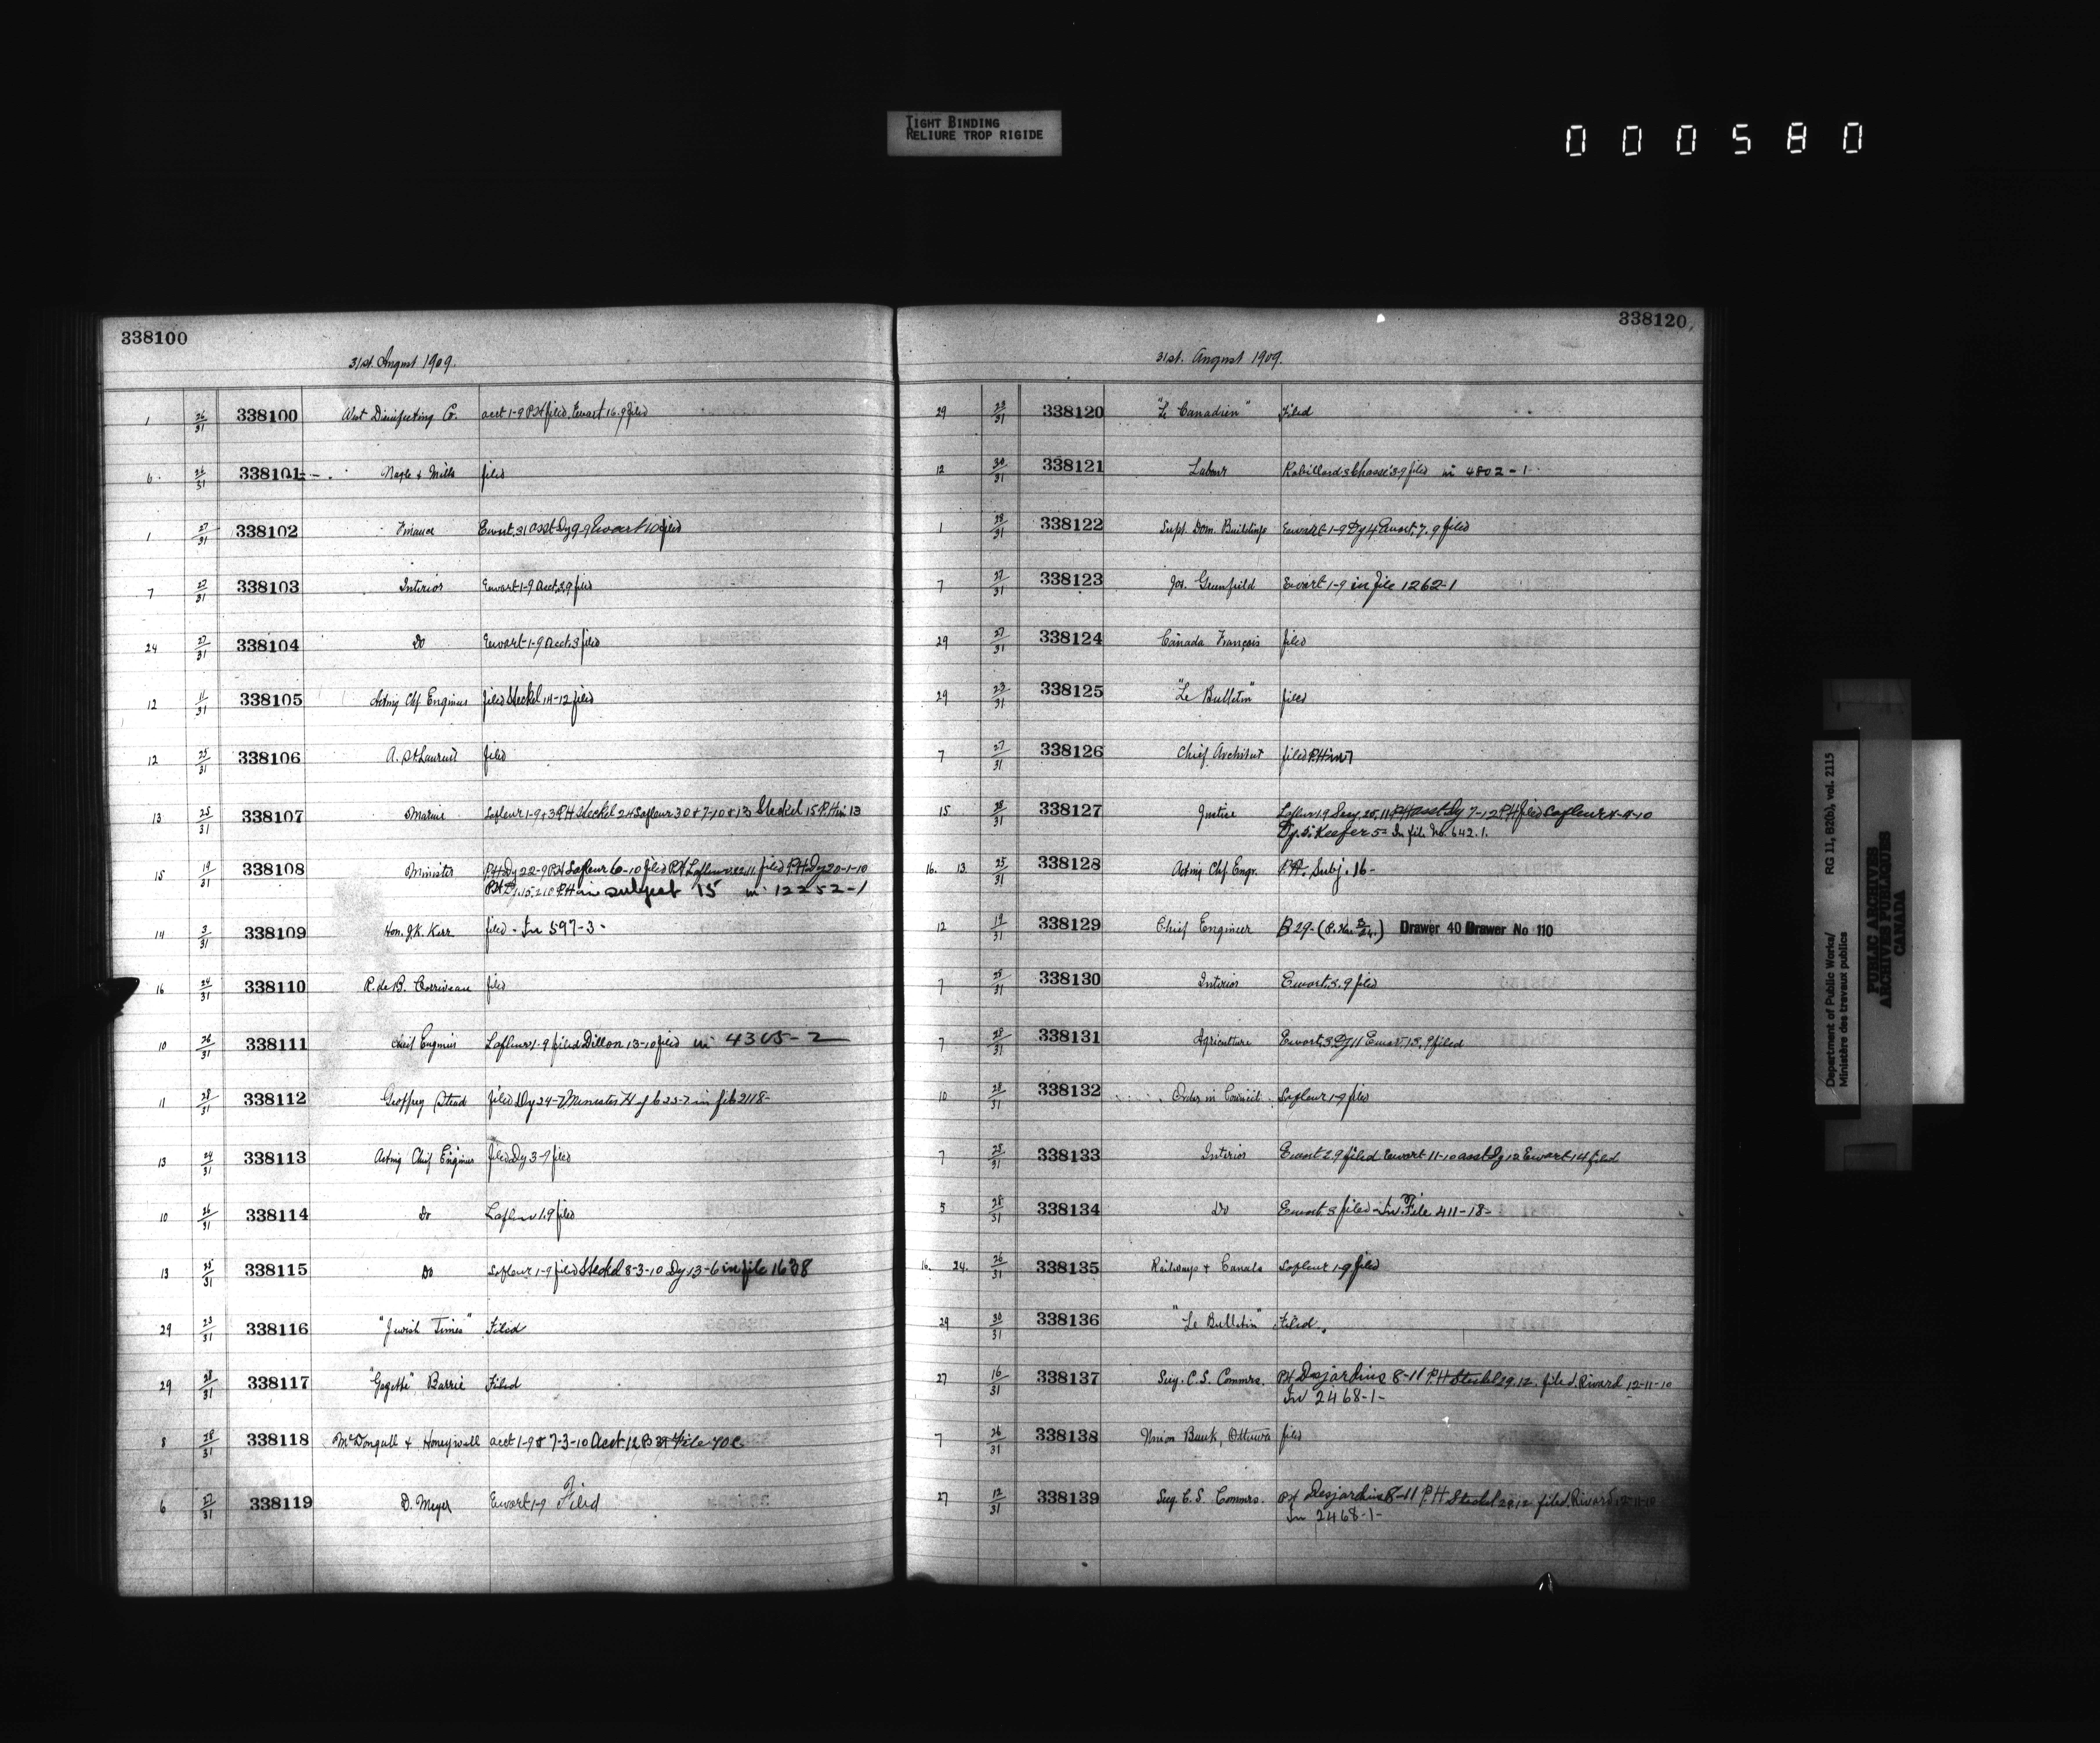 TIGHT BINDING
RELIURE TROP RIGIDE
000580
338100
31st. August 1909.
1 26/31 338100 West Disinfecting Co. acct 1-9 PH filed. Ewart 16.9 filed
6 26/31 338101 Nagle & Mills filed
1 27/31 338102 Finance Ewart, 31 asst Dy 9 9 Ewart 10 filed
7 27/31 338103 Interior Ewart 1-9 Acct. 3.9 filed
24 27/31 338104 Do Ewart 1-9 Acct. 3 filed
12 11/31 338105 Acting Chf Engineer filed Steckel 14-12 filed
12 25/31 338106 A. St. Laurent filed
13 25/31 338107 Marine Lafleur 1-9 & 3 PH Steckel 24 Lafleur 30 & 7-10 & 13 Steckel 15 P.H in 13
15 19/31 338108 Minister P.H Dy 22-9 PH Lafleur 6-10 filed PH Lafleur 22.11 filed P.H Dy 20-1-10
PH in subject 15 in 12252-1
14 3/31 338109 Hon. J.K. Kerr filed - In 597-3-
16 24/31 338110 R. de B. Corriveau filed
10 26/31 338111 Chief Engineer Lafleur 1-9 filed Dillon 13-10 filed in 4305-2
11 28/31 338112 Geoffrey Stead filed Dy 24-7 Minister in file 2118-
13 24/31 338113 Acting Chief Engineer filed Dy 3-9 filed
10 26/31 338114 Do Lafleur 1.9 filed
13 25/31 338115 Do Lafleur 1-9 filed Steckel 8-3-10 Dy 13-6 in file 1638
29 23/31 338116 "Jewish Times" Filed
29 28/31 338117 "Gazette" Barrie Filed
8 28/31 338118 McDougall & Honeywell acct 1-9 & 7-3-10 Acct. 12 File 70C
6 27/31 338119 D. Meyer Ewart 1-9 Filed
338120
31st. August 1909.
29 23/31 338120 "Le Canadien" Filed
12 30/31 338121 Labour Robillard & Chasse 3-9 filed in 4802-1
1 28/31 338122 Supt. Dom. Buildings Ewart 1-9 Dy 4 Ewart, 7.9 filed
7 27/31 338123 Jos. Greenfield Ewart 1-9 in file 1262-1
29 27/31 338124 Canada Français filed
29 23/31 338125 "Le Bulletin" filed
7 27/31 338126 Chief Architect filed P.H in 7
15 28/31 338127 Justice Lafleur 1.9 PH asst Dy 7-12 P.H filed Lafleur
Dy. 5. Keefer 5= In file No. 642.1.
16. 13. 25/31 338128 Acting Chf Engr. P.H. Subj. 16-
12 19/31 338129 Chief Engineer B 29- Drawer 40 Drawer No 110
7 28/31 338130 Interior Ewart. 3. 9 filed
7 28/31 338131 Agriculture Ewart, 3 Dy 11 Ewart, 13, 9 filed
10 28/31 338132 Order in Council Lafleur 1-9 filed
7 28/31 338133 Interior Ewart 2.9 filed Ewart 11-10 asst Dy 12 Ewart 14 filed
5 28/31 338134 Do Ewart. 3 filed - In File 411-18-
16. 24. 26/31 338135 Railways & Canals Lafleur 1-9 filed
29 30/31 338136 "Le Bulletin" Filed.
27 16/31 338137 Secy. C.S. Commrs. PH Desjardins 8-11 P.H Steckel 29.12. filed. Rivard 12-11-10
In 2468-1-
7 26/31 338138 Union Bank, Ottawa filed
27 12/31 338139 Secy. C.S. Commrs. PH Desjardins 8-11 P.H Steckel 29.12 filed. Rivard 12-11-10
In 2468-1-
Department of Public Works/ RG 11, B2(b), vol. 2115
Ministère des travaux publics
PUBLIC ARCHIVES
ARCHIVES PUBLIQUES
CANADA